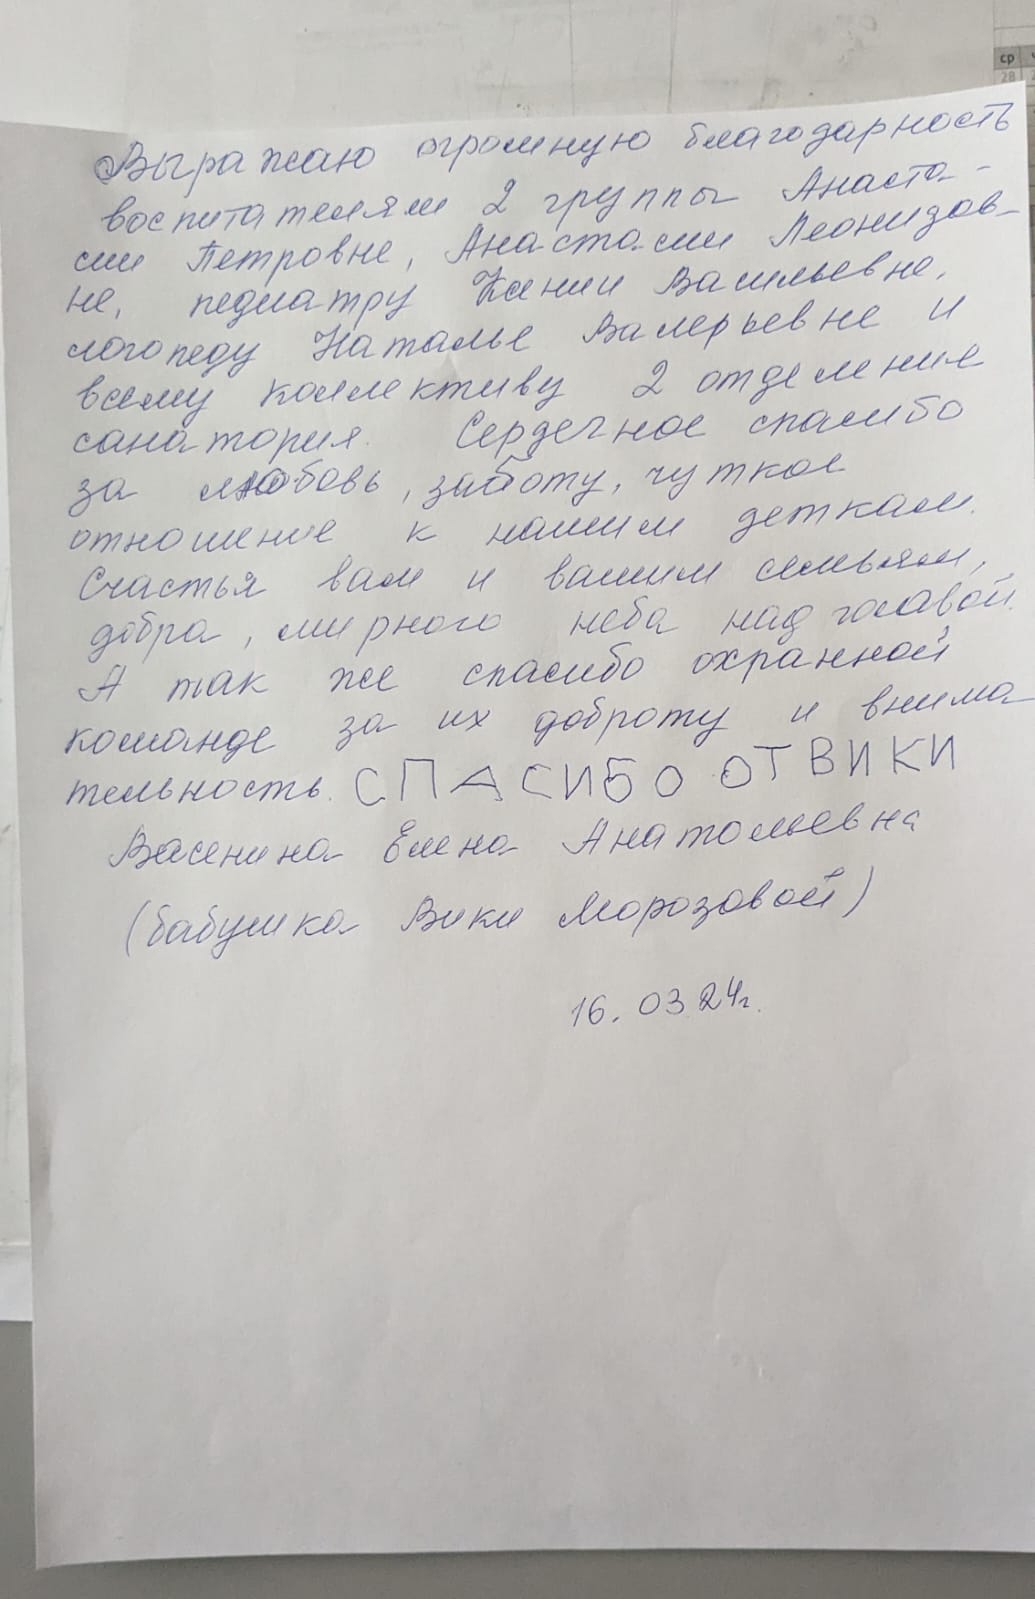 ср
28
Выражаю огромную благодарность
воспитателям 2 группы Анаста-
сии Петровне, Анастасии Леонидов-
не, педиатру Ксении Васильевне,
логопеду Наталье Валерьевне и
всему коллективу 2 отделение
санатория. Сердечное спасибо
за любовь, заботу, чуткое
отношение к нашим деткам.
Счастья вам и вашим семьям,
добра, мирного неба над головой.
А так же спасибо охранной
команде за их доброту и внима
тельность. СПАСИБО ОТ ВИКИ
Васенина Елена Анатольевна
(бабушка Вики Морозовой)
16.03.24г.